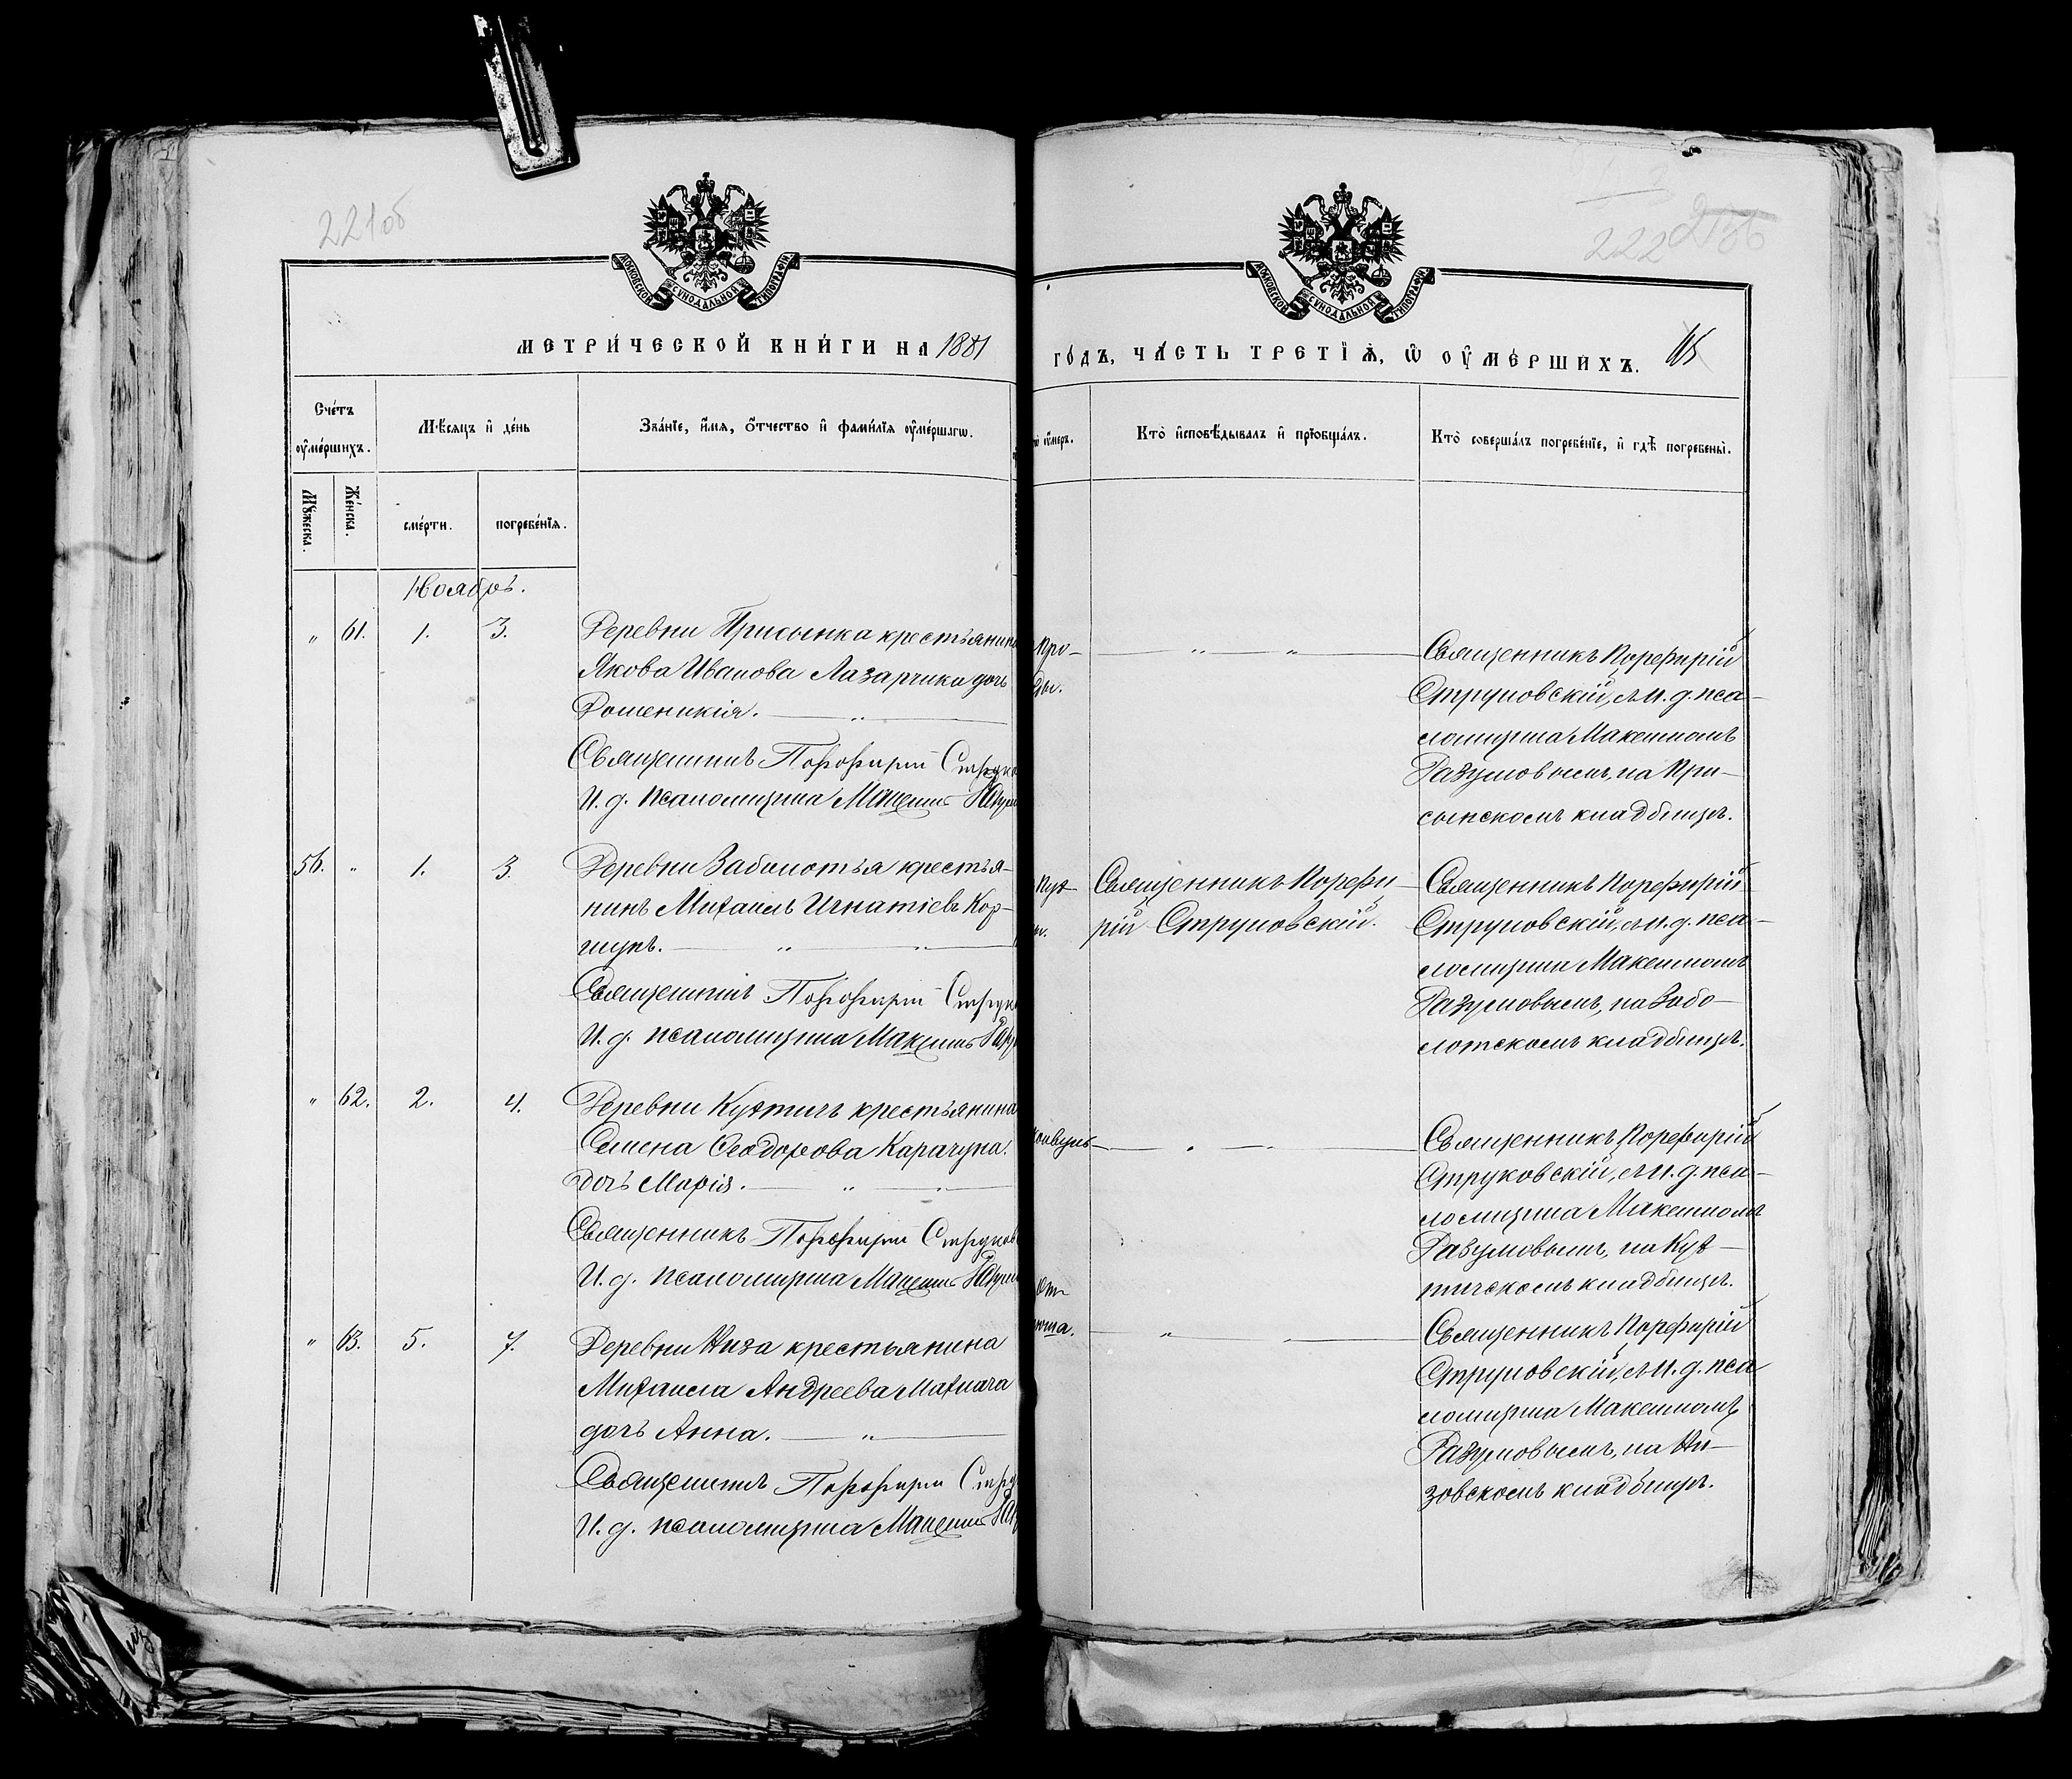 221об
222
МОСКОВСКОЙ СУНОДАЛЬНОЙ ТИПОГРАФІИ
МОСКОВСКОЙ СУНОДАЛЬНОЙ ТИПОГРАФІИ
МЕТРИ́ЧЕСКОЙ КНИ́ГИ НА 1881
ГО́ДЪ, ЧА́СТЬ ТРЕТІѦ, Ѡ ОУМЕ́РШИХЪ.
Сче́тъ оу҆ме́ршихъ.
Мѣ́сяцъ и҆ де́нь
Зва́нїе, и҆́мя, ѻ҆́тчество и҆ фами́лїя оу҆ме́ршагѡ.
оу҆́меръ.
Кто̀ и҆сповѣ́дывалъ и҆ прїѻбща́лъ.
Кто̀ соверша́лъ погребе́нїе, и҆ гдѣ̀ погребены̀.
Мꙋ́жеска.
Же́нска.
сме́рти.
погребе́нїя.
Ноябрь.
" 61. 1. 3.
Деревни Присынка крестьянина
Якова Иванова Лазарчика дочь
Священникъ Порфирій
И. д. псаломщика Максимъ
Про-
Священникъ Порфирій
Струковскій, съ И. д. пса-
ломщика Максимомъ
Разумовымъ, на При-
сынскомъ кладбищѣ.
56. " 1. 3.
Деревни Заболотья крестья-
нинъ Михаилъ Игнатіевъ Кор-
шукъ.
Священникъ Порфирій
И. д. псаломщика Максимъ
Священникъ Порфи-
рій Струковскій.
Священникъ Порфирій
Струковскій, съ И. д. пса-
ломщика Максимомъ
Разумовымъ, на Забо-
лотскомъ кладбищѣ.
" 62. 2. 4.
Деревни Кухтичъ крестьянина
Семена Ѳеодорова Карачуна
дочь Марія.
Священникъ Порфирій Струков
И. д. псаломщика Максимъ
конвуль-
Священникъ Порфирій
Струковскій, съ И. д. пса-
ломщика Максимомъ
Разумовымъ, на Кух-
тичскомъ кладбищѣ.
" 63. 5. 7.
Деревни Низа крестьянина
Михаила Андреева Махнача
дочь Анна.
Священникъ Порфирій
И. д. псаломщика Максимъ
Священникъ Порфирій
Струковскій, съ И. д. пса-
ломщика Максимомъ
Разумовымъ, на Ни-
зовскомъ кладбищѣ.